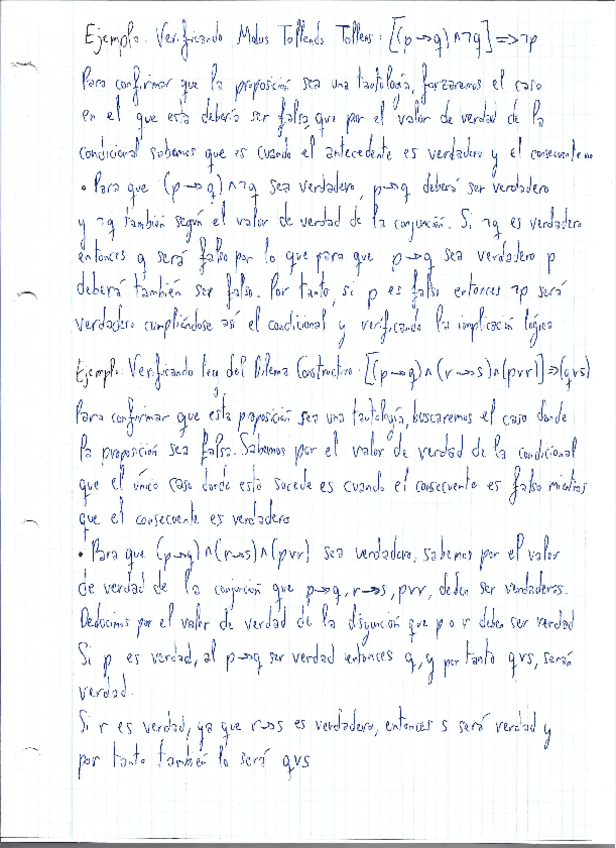 Ejemplo: Verificando Modus Tollendo Tollens: [(p→q)∧¬q]=>¬p
Para confirmar que la proposición sea una tautología, forzaremos el caso
en el que esta debería ser falsa, que por el valor de verdad de la
condicional sabemos que es cuando el antecedente es verdadero y el consecuente no
• Para que (p→q)∧¬q sea verdadero, p→q deberá ser verdadero
y ¬q también según el valor de verdad de la conjunción. Si ¬q es verdadero
entonces q será falso por lo que para que p→q sea verdadero p
deberá también ser falso. Por tanto, si p es falso entonces ¬p será
verdadero cumpliéndose así el condicional y verificando la implicación lógica
Ejemplo: Verificando ley del Dilema Constructivo: [(p→q)∧(r→s)∧(p∨r)]=>(q∨s)
Para confirmar que esta proposición sea una tautología, buscaremos el caso donde
la proposición sea falsa. Sabemos por el valor de verdad de la condicional
que el único caso donde esto sucede es cuando el consecuente es falso mientras
que el consecuente es verdadero
• Para que (p→q)∧(r→s)∧(p∨r) sea verdadero, sabemos por el valor
de verdad de la conjunción que p→q, r→s, p∨r, deben ser verdaderos.
Deducimos por el valor de verdad de la disyunción que p o r deben ser verdad
Si p es verdad, al p→q ser verdad entonces q, y por tanto q∨s, serán
verdad.
Si r es verdad, ya que r→s es verdadero, entonces s será verdad y
por tanto también lo será q∨s